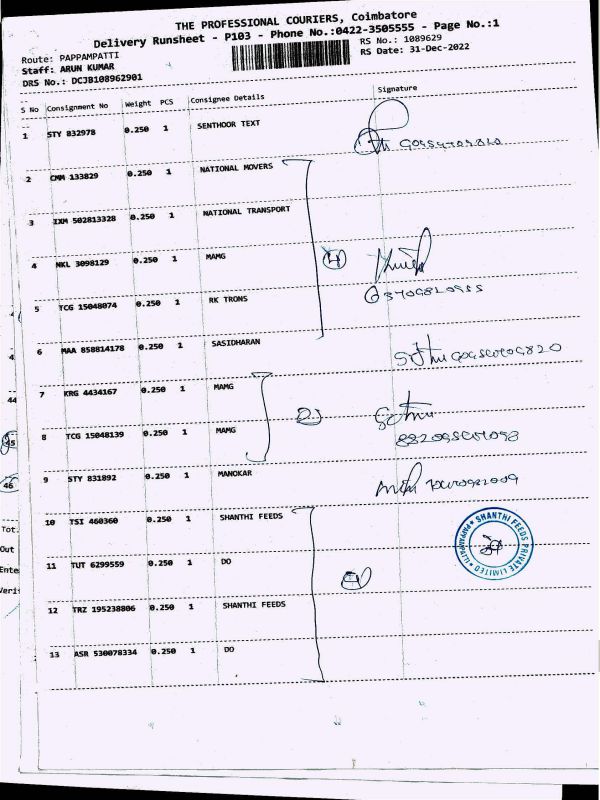 THE PROFESSIONAL COURIERS, Coimbatore
Delivery Runsheet - P103 - Phone No.:0422-3505555 - Page No.:1
Route: PAPPAMPATTI
RS No.: 1089629
Staff: ARUN KUMAR
RS Date: 31-Dec-2022
DRS No.: DCJB108962901
S No Consignment No Weight PCS Consignee Details Signature
1 STY 832978 0.250 1 SENTHOOR TEXT
2 CMM 133829 0.250 1 NATIONAL MOVERS
3 IXM 502813328 0.250 1 NATIONAL TRANSPORT
4 NKL 3098129 0.250 1 MAMG
4
5 TCG 15048074 0.250 1 RK TRONS
6 MAA 858814178 0.250 1 SASIDHARAN
7 KRG 4434167 0.250 1 MAMG
2
8 TCG 15048139 0.250 1 MAMG
9 STY 831892 0.250 1 MANOKAR
10 TSI 460360 0.250 1 SHANTHI FEEDS
SHANTHI FEEDS PRIVATE LIMITED
11 TUT 6299559 0.250 1 DO
4
12 TRZ 195238806 0.250 1 SHANTHI FEEDS
13 ASR 530078334 0.250 1 DO
44
45
46
Tot
Out
Ente
Veri